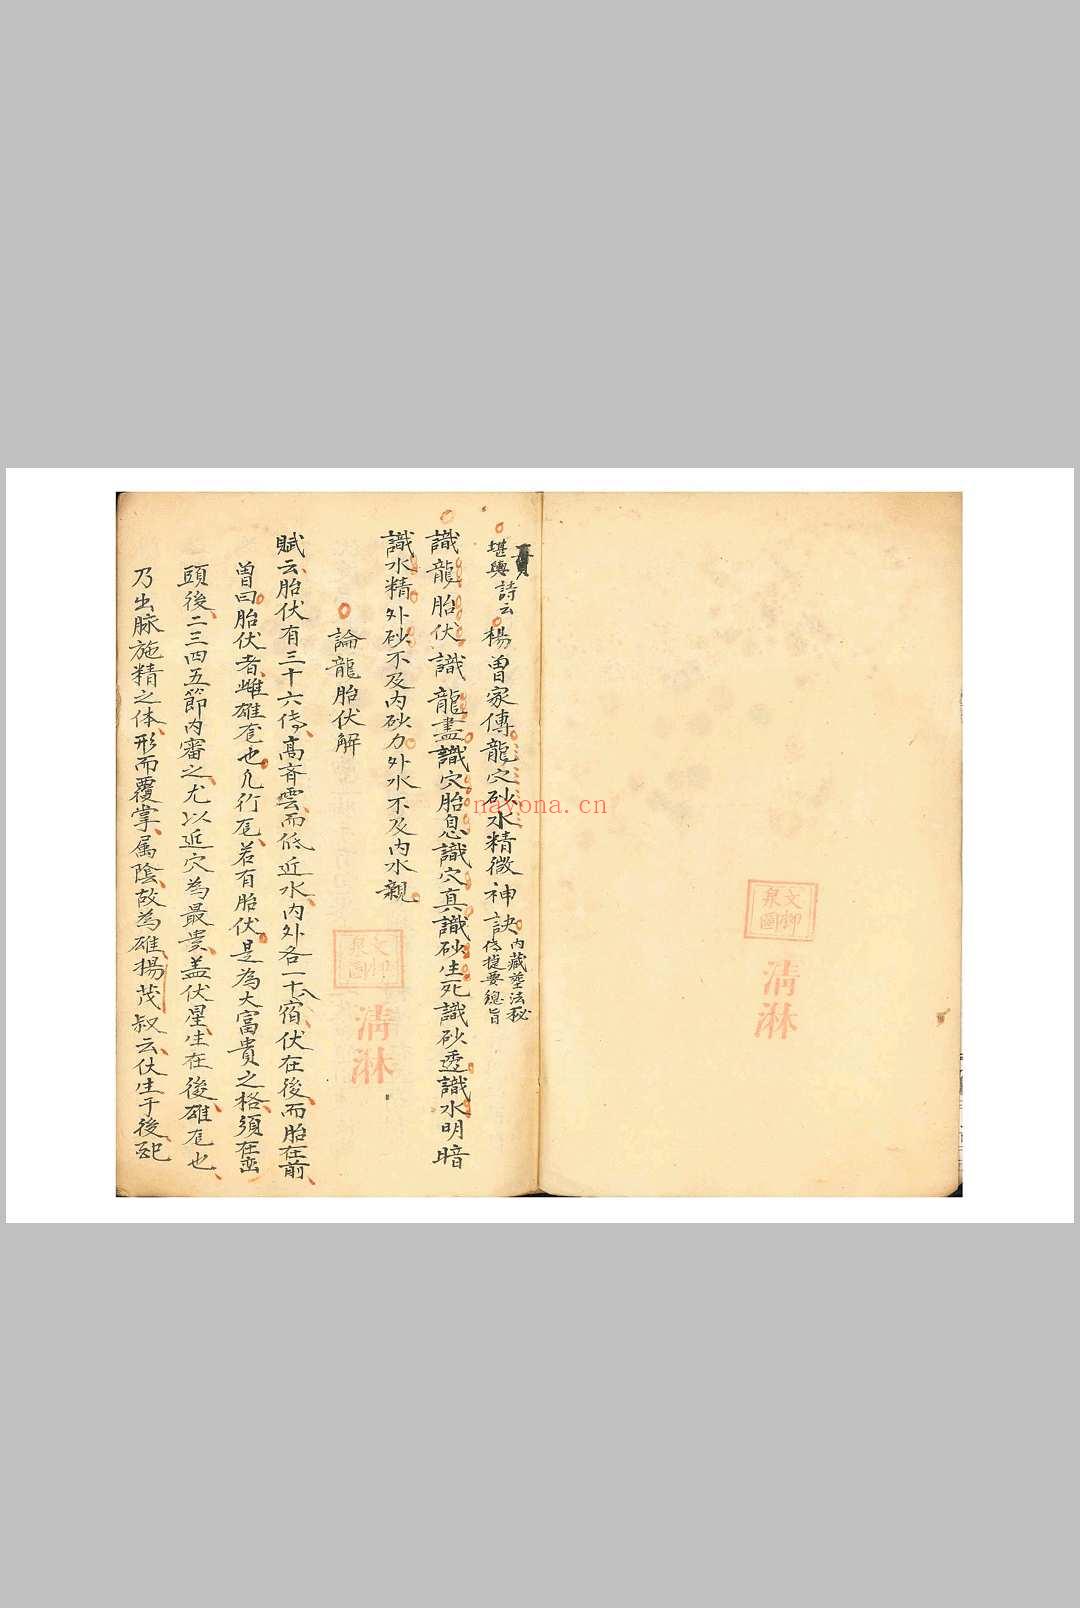 堪輿詩云楊曾家傳龍穴砂水精微神訣內藏塟法秘傳捷要總旨
識龍胎伏識龍盡識穴胎息識穴真識砂生死識砂透識水明暗
識水精外砂不及內砂力外水不及內水親
論龍胎伏解
賦云胎伏有三十六傳高齊雲而低近水內外各一十八宿伏在後而胎在前
曾曰胎伏者雌雄也凡行若有胎伏是為大富貴之格須在巒
頭後二三四五節內審之尤以近穴為最貴盖伏星生在後雄也
乃出脉施精之体形而覆掌属陰故為雄楊茂叔云伏生于後
文
泉
圖
清淋
文
泉
圖
清淋
nayona.cn